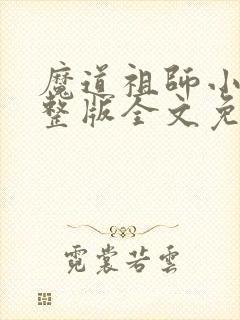 魔道祖師小
整版全文免
霓裳若雲